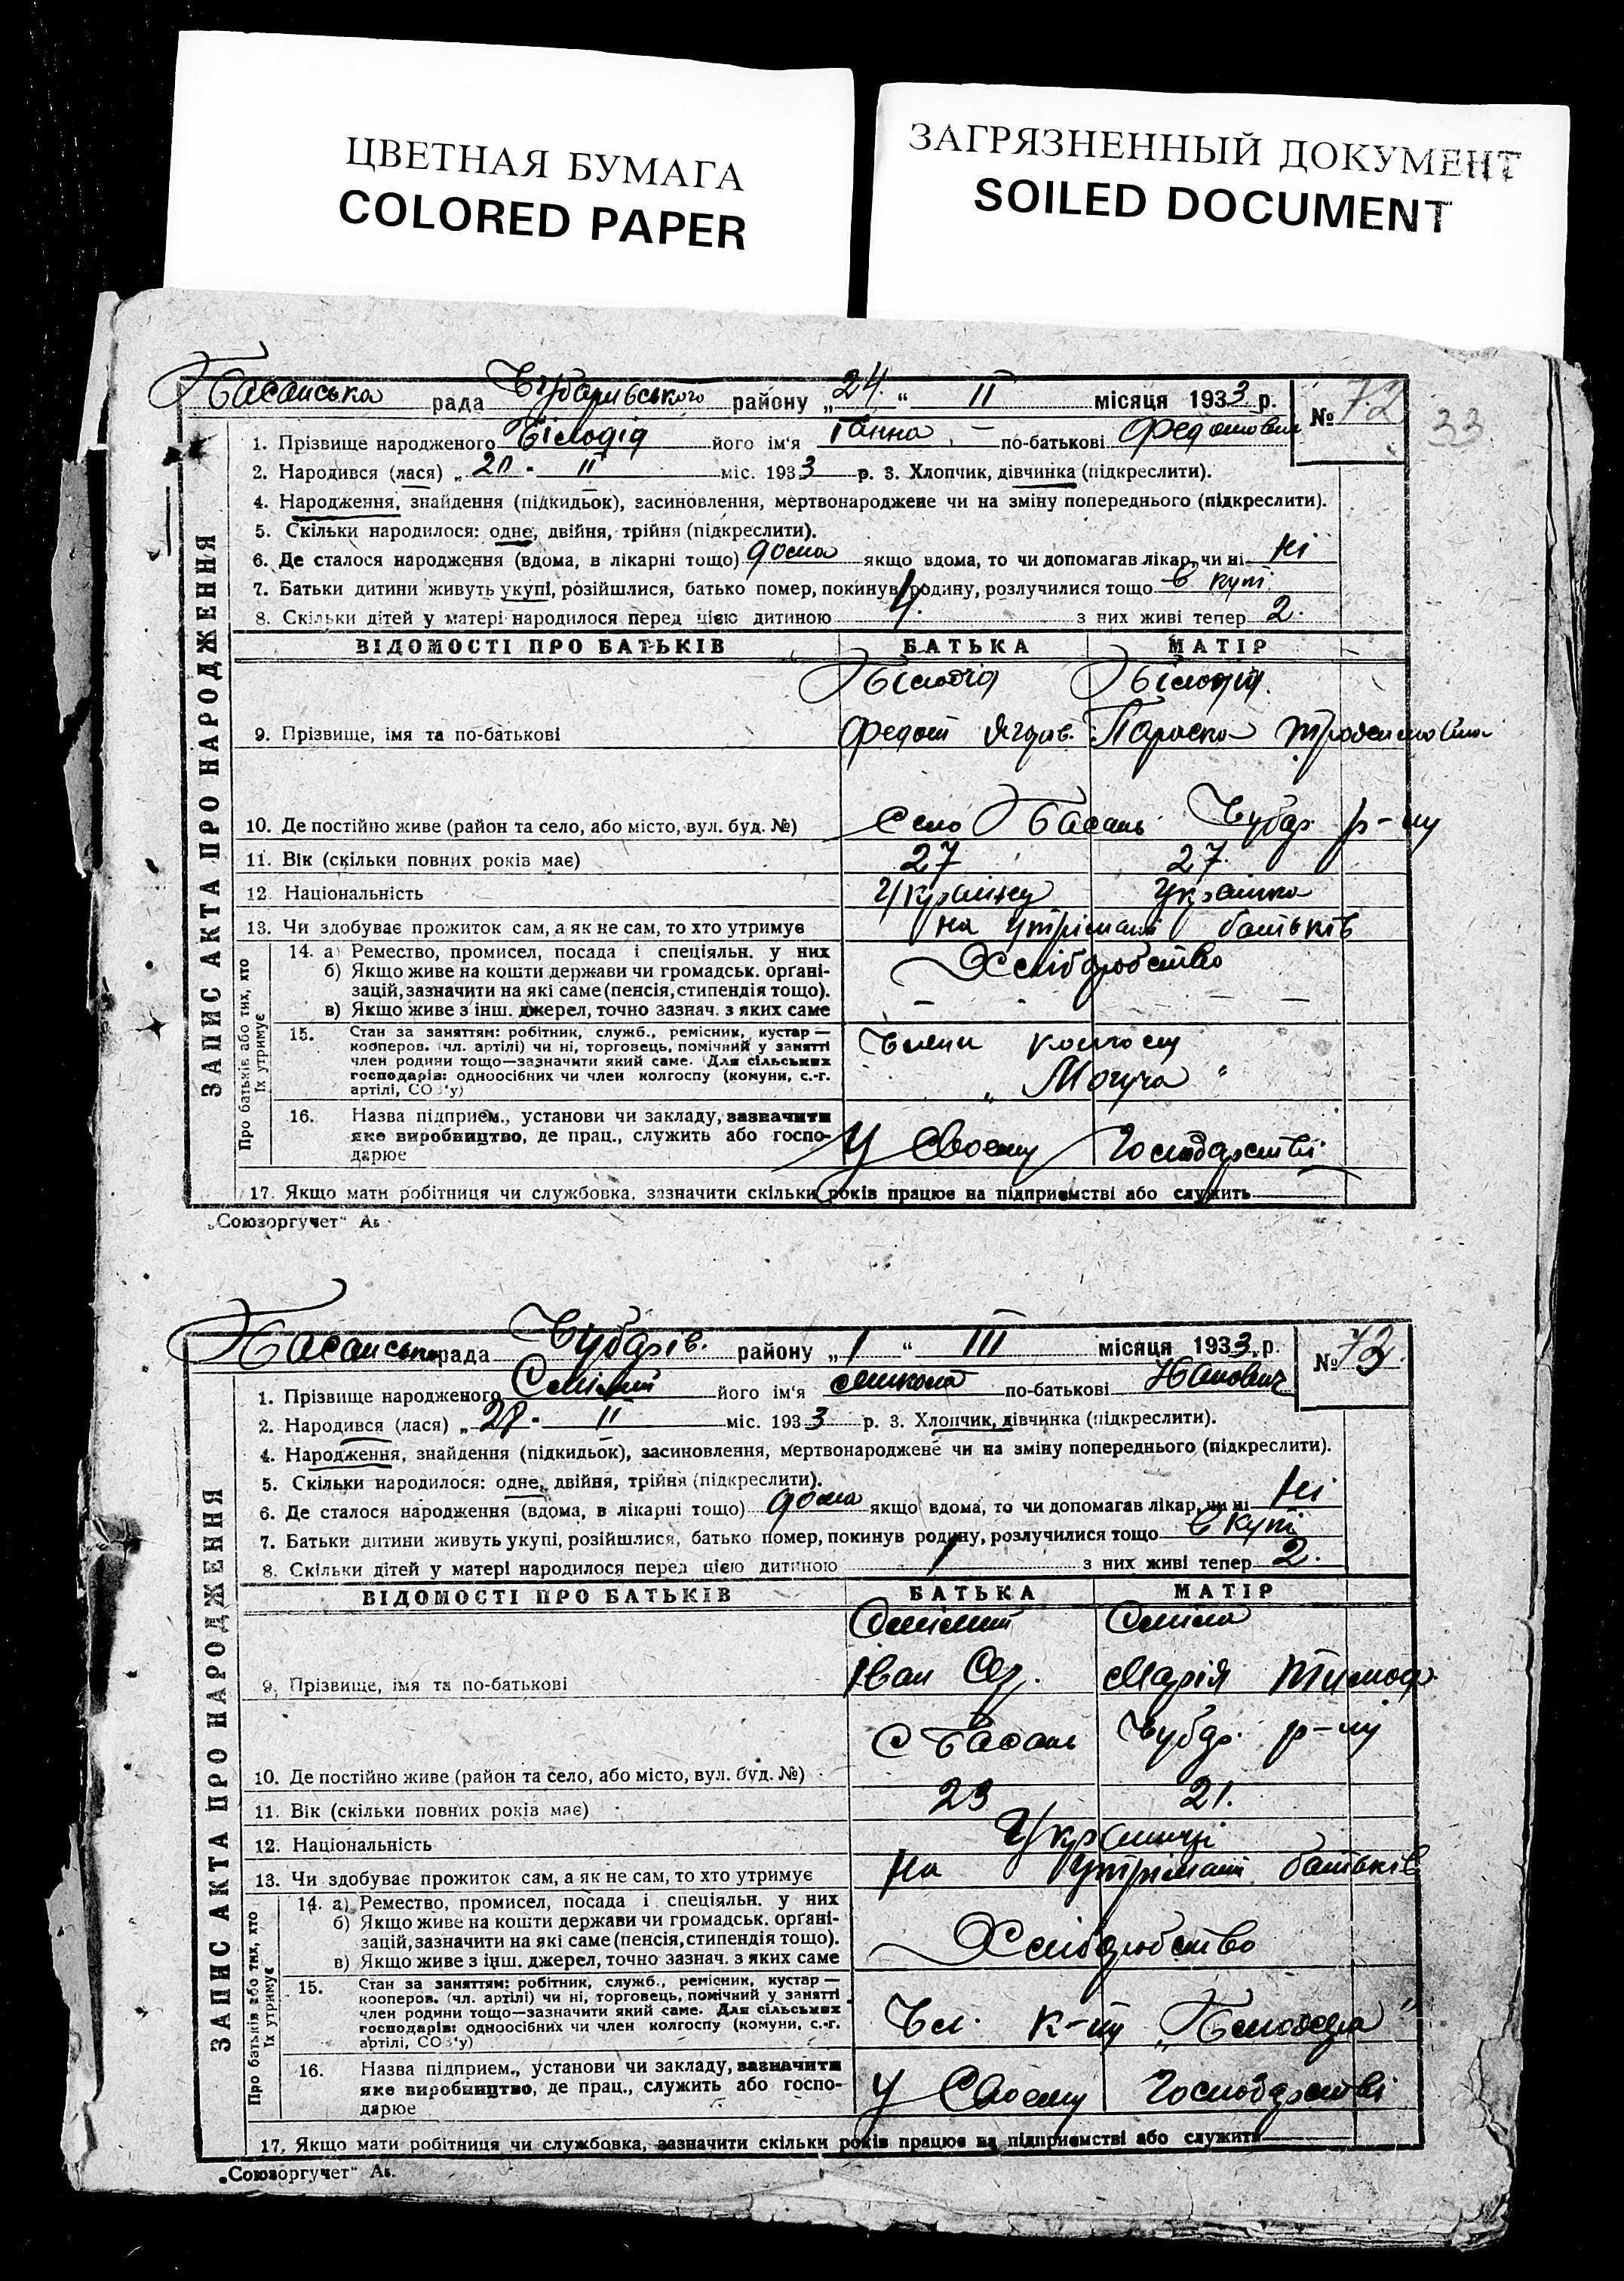 ЦВЕТНАЯ БУМАГА
COLORED PAPER
ЗАГРЯЗНЕННЫЙ ДОКУМЕНТ
SOILED DOCUMENT
33
ЗАПИС АКТА ПРО НАРОДЖЕННЯ
Басанська рада Чубарівського району „24“ II місяця 1933 р. № 72
1. Прізвище народженого Білодід його ім'я Ганна по-батькові
2. Народився (лася) „20 - II міс. 1933 р. 3. Хлопчик, дівчинка (підкреслити).
4. Народження, знайдення (підкидьок), засиновлення, мертвонароджене чи на зміну попереднього (підкреслити).
5. Скільки народилося: одне, двійня, трійня (підкреслити).
6. Де сталося народження (вдома, в лікарні тощо) дома якщо вдома, то чи допомагав лікар, чи ні Ні
7. Батьки дитини живуть укупі, розійшлися, батько помер, покинув родину, розлучилися тощо в купі
8. Скільки дітей у матері народилося перед цією дитиною 4. з них живі тепер 2.
ВІДОМОСТІ ПРО БАТЬКІВ БАТЬКА МАТІР
Білодід Білодід.
9. Прізвище, імя та по-батькові Федот Параска
10. Де постійно живе (район та село, або місто, вул. буд. №) Село Басань Чубар. р-ну
11. Вік (скільки повних років має) 27 27.
12 Національність Українка
13. Чи здобуває прожиток сам, а як не сам, то хто утримує на утрімані батьків
Про батьків або тих, хто їх утримує
14. а) Ремество, промисел, посада і спеціяльн. у них Хліборобство
б) Якщо живе на кошти держави чи громадськ. орґані-
зацій, зазначити на які саме (пенсія, стипендія тощо).
в) Якщо живе з інш. джерел, точно зазнач. з яких саме
15. Стан за заняттям: робітник, служб., ремісник, кустар — Члени колгоспу
кооперов. (чл. артілі) чи ні, торговець, помічний у занятті
член родини тощо—зазначити який саме. Для сільських
господарів: одноосібних чи член колгоспу (комуни, с.-г.
артілі, СОЗ'у)
16. Назва підприєм., установи чи закладу, зазначити
яке виробництво, де прац., служить або госпо- У Своєму Господарстві
дарює
17. Якщо мати робітниця чи службовка, зазначити скільки років працює на підприємстві або служить
„Союзоргучет“ Ав.
ЗАПИС АКТА ПРО НАРОДЖЕННЯ
Басанська рада Чубарів. району „1“ III місяця 1933 р. № 73.
1. Прізвище народженого Смілий його ім'я Микола по-батькові Іванович
2. Народився (лася) „28 - II міс. 1933 р. 3. Хлопчик, дівчинка (підкреслити).
4. Народження, знайдення (підкидьок), засиновлення, мертвонароджене чи на зміну попереднього (підкреслити).
5. Скільки народилося: одне, двійня, трійня (підкреслити).
6. Де сталося народження (вдома, в лікарні тощо) дома якщо вдома, то чи допомагав лікар, чи ні Ні
7. Батьки дитини живуть укупі, розійшлися, батько помер, покинув родину, розлучилися тощо в купі
8. Скільки дітей у матері народилося перед цією дитиною 1 з них живі тепер 2.
ВІДОМОСТІ ПРО БАТЬКІВ БАТЬКА МАТІР
Смілий Сміла
9. Прізвище, імя та по-батькові Іван Марія Тимоф.
С Басань Чубар. р-ну
10. Де постійно живе (район та село, або місто, вул. буд. №)
11. Вік (скільки повних років має) 23 21.
12. Національність Українці
13. Чи здобуває прожиток сам, а як не сам, то хто утримує На утрімані батьків
Про батьків або тих, хто їх утримує
14. а) Ремество, промисел, посада і спеціяльн. у них
б) Якщо живе на кошти держави чи громадськ. орґані-
зацій, зазначити на які саме (пенсія, стипендія тощо). Хліборобство
в) Якщо живе з інш. джерел, точно зазнач. з яких саме
15. Стан за заняттям: робітник, служб., ремісник, кустар —
кооперов. (чл. артілі) чи ні, торговець, помічний у занятті
член родини тощо—зазначити який саме. Для сільських Чл. к-пу
господарів: одноосібних чи член колгоспу (комуни, с.-г.
артілі, СОЗ'у)
16. Назва підприєм., установи чи закладу, зазначити
яке виробництво, де прац., служить або госпо- У Своєму Господарстві
дарює
17. Якщо мати робітниця чи службовка, зазначити скільки років працює на підприємстві або служить
„Союзоргучет“ Ав.